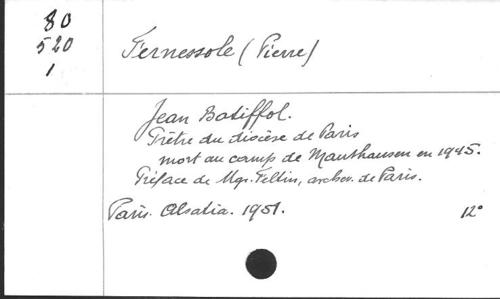 80
520
1
Fernessole (Pierre)
Jean Batiffol.
Prêtre du diocèse de Paris
mort au camp de Mauthausen en 1945.
Préface de Mgr. Feltin, archev. de Paris.
Paris. Alsatia. 1951. 12°